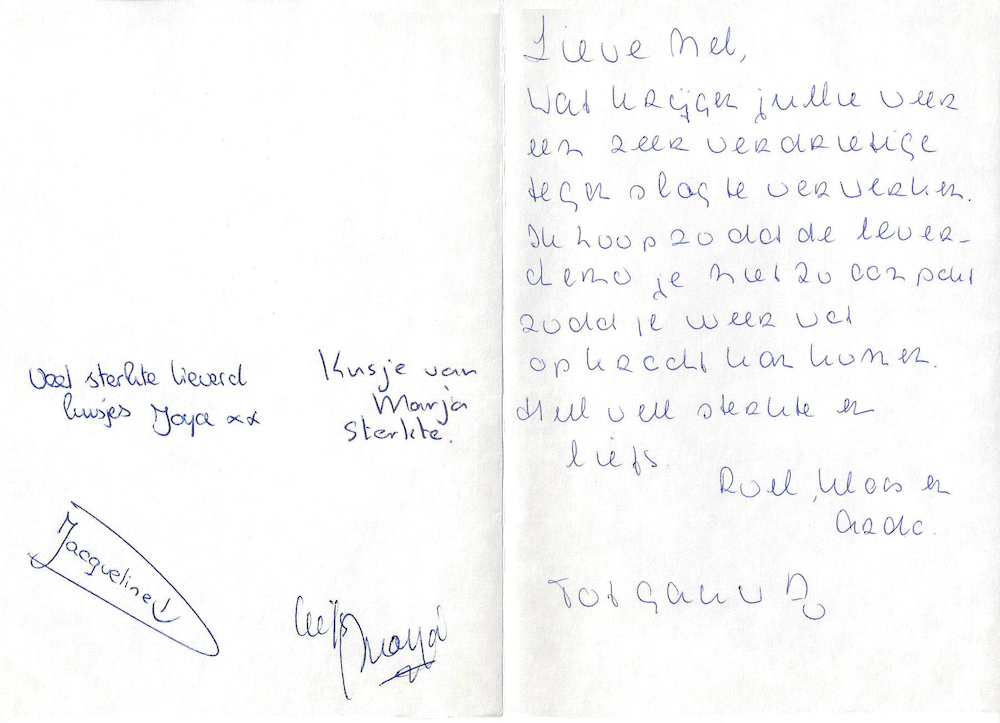 Veel sterkte lieverd
kusjes Joya xx
Kusje van
Marja
Sterkte.
Jacqueline
liefs
Lieve Mel,
Wat krijgen jullie weer
een zeer verdrietige
tegenslag te verwerken.
Ik hoop zo dat de lever-
chemo je niet zo aanpakt
zodat je weer wat
op kracht kan komen.
Heel veel sterkte en
liefs.
Roel, Klaas en
Tot gauw